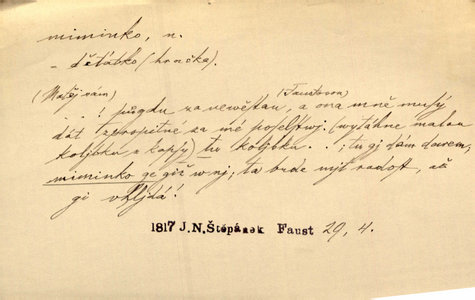 miminko, n.
- děťátko (hračka).
(Matěj sám) (Faustovou)
. . ! půgdu za newěstau, a ona mně musý
dát zpropitné za mé poselstwj (wytáhne malau
koljbku z kapsy) tu koljbku . . ; tu gj dám darem,
miminko ge giž w nj; ta bude mjt radost, až
gi uhljdá!
1817 J.N.Štěpánek Faust 29, 4.